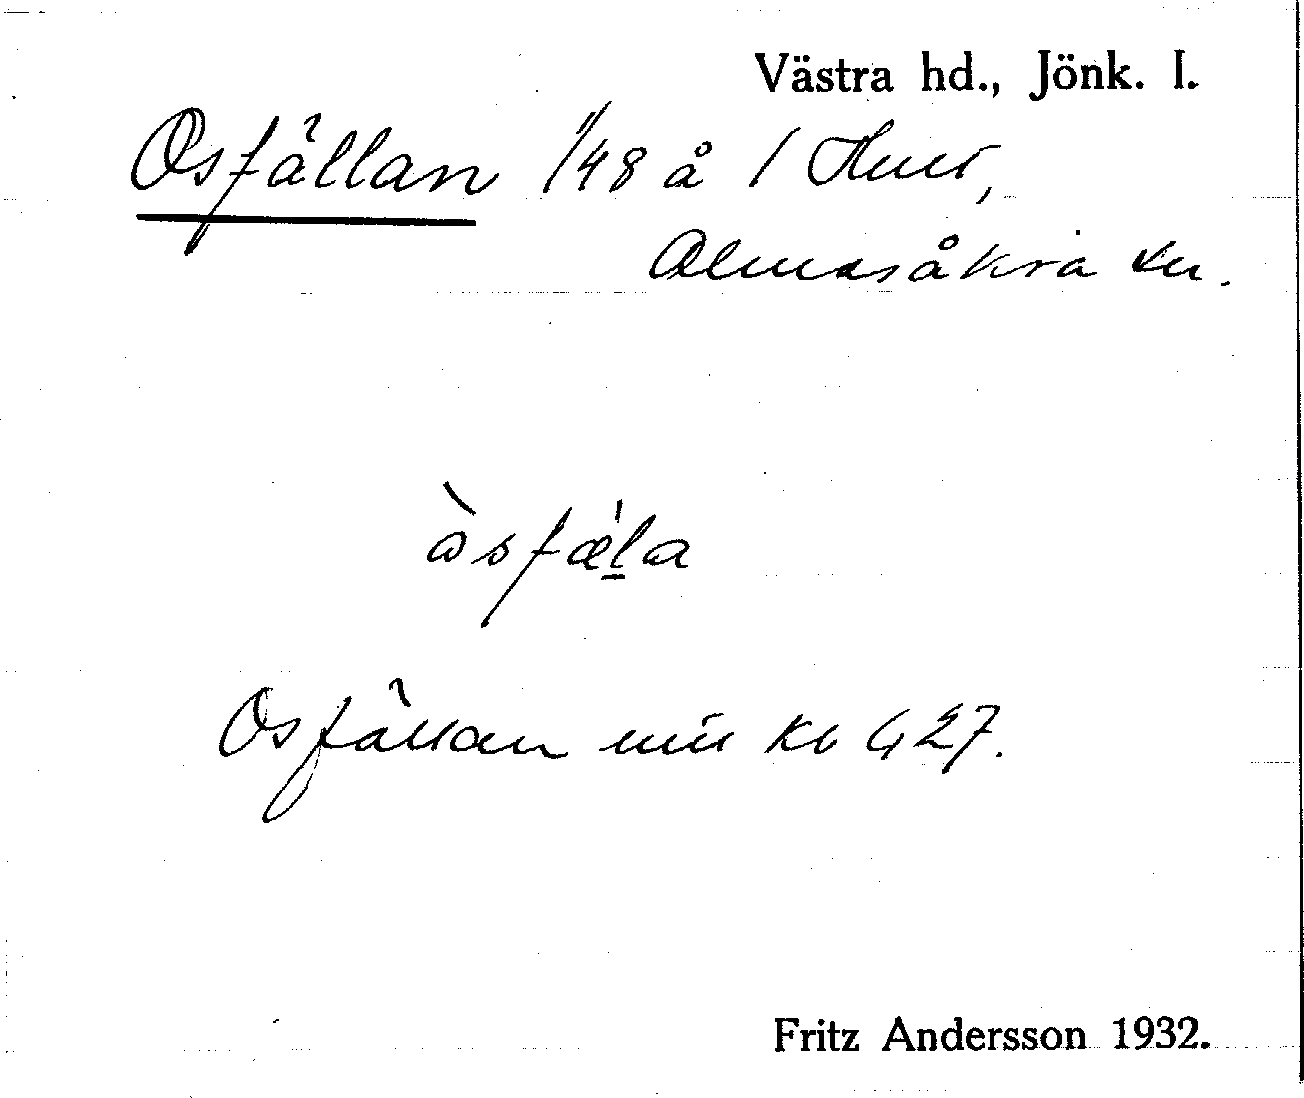 Västra hd., Jönk. l.
Osfällan 1/48 å 1 Hult,
Almesåkra sn.
àsfæ̀la
Osfällan min Kb G 27.
Fritz Andersson 1932.